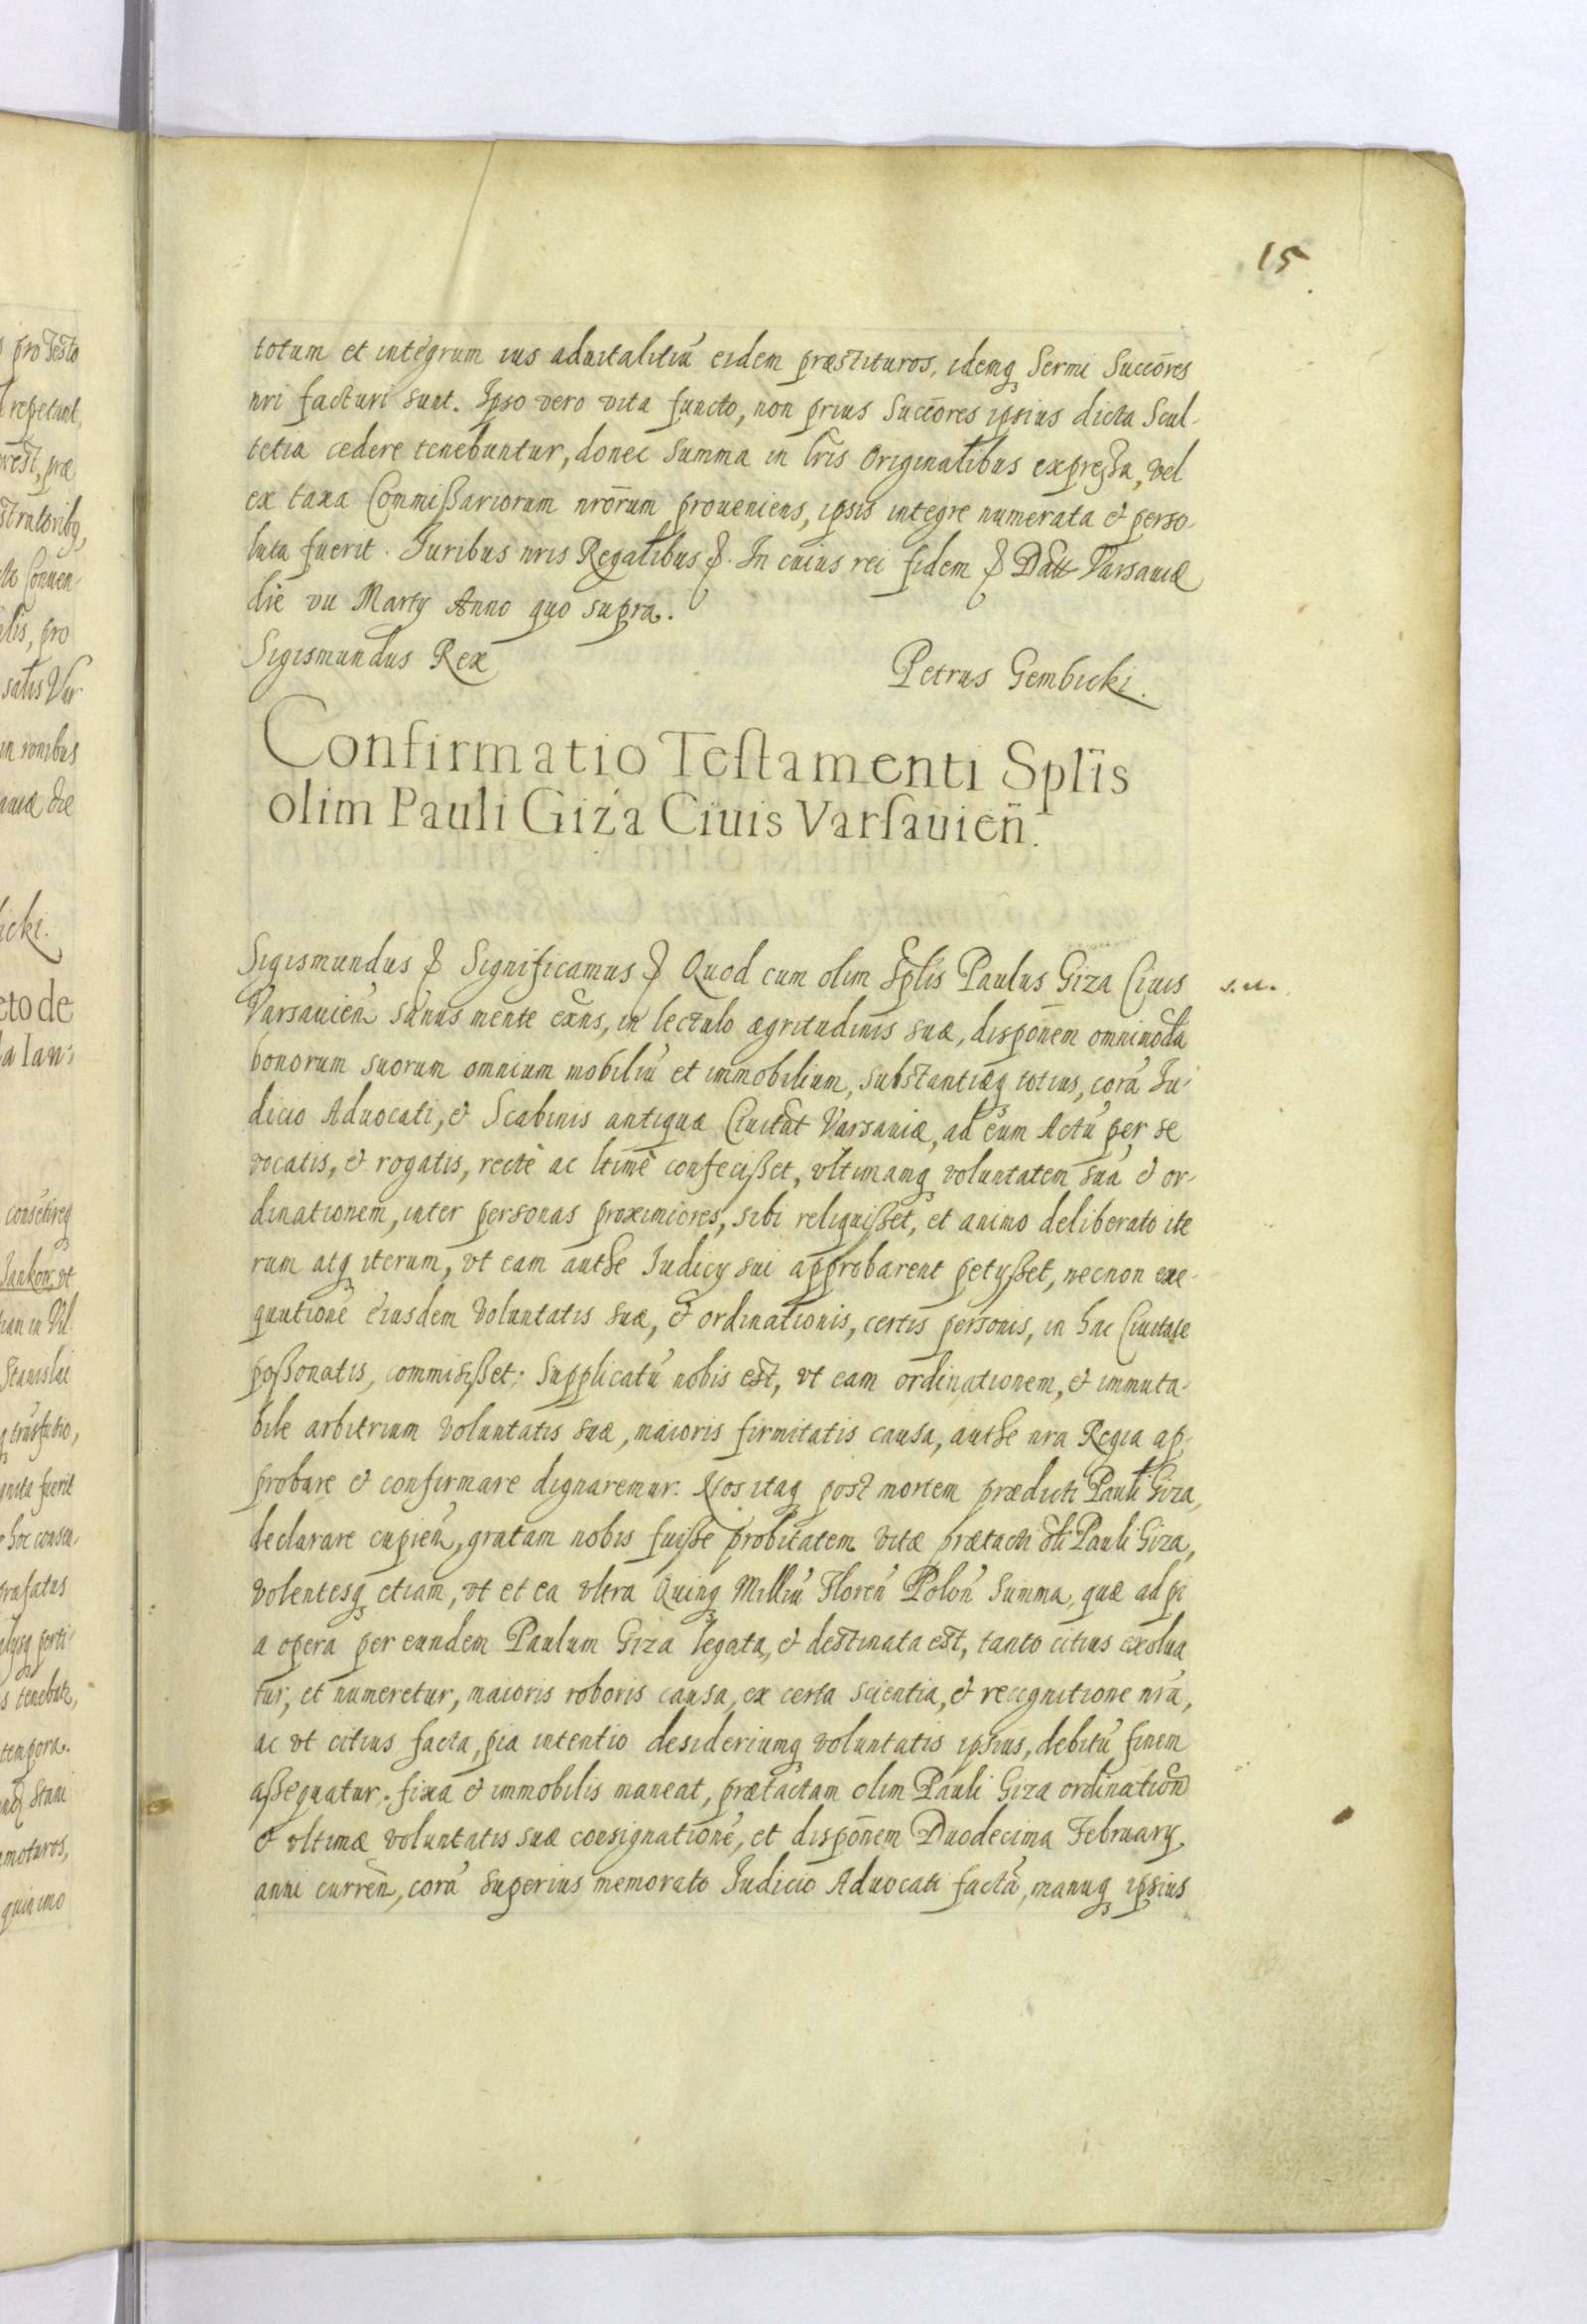 15
totum et integrum ius aduitalitiū eidem præstituros, idemq̃ Sermi Succōres
nri facturi sunt. Ipso vero vita functo, non prius Succōres ipsius dicta Scul-
tetia cedere tenebuntur, donec summa in lr̄is Originalibus expreßa, vel
ex taxa Commißariorum nrōrum proueniens, ipsis integre numerata et perso-
luta fuerit. Iuribus nris Regalibus &. In cuius rei fidem & Datt Varsauiæ
die vii Martÿ Anno quo supra.
Sigismundus Rex
Petrus Gembicki.
Confirmatio Teſtamenti Splīs
olim Pauli Giża Ciuis Varſauien̄.
Sigismundus & Significamus & Quod cum olim Splīs Paulus Giza Ciuis
s. u.
Varsauien̄ sanus mente exn̄s, in lectulo ægritudinis suæ, dispōnem omnimodā
bonorum suorum omnium mobiliū et immobilium, substantiæq̃ totius, corā Iu-
dicio Aduocati, et Scabinis antiquæ Ciuitat Varsauiæ, ad eum Actū per se
vocatis, et rogatis, rectè ac ltimè confecißet, vltimamq̃ voluntatem suā et or-
dinationem, inter personas proximiores, sibi reliquißet, et animo deliberato ite
rum atq̃ iterum, vt eam authe Iudicÿ sui approbarent petÿßet, necnon exe-
quutionē eiusdem voluntatis suæ, et ordinationis, certis personis, in hac Ciuitate
poßonatis, commisißet: Supplicatū nobis est, vt eam ordinationem, et immuta-
bile arbitrium voluntatis suæ, maioris firmitatis causa, authe nra Regia ap-
probare et confirmare dignaremur. Nos itaq̃ post mortem prædicti Pauli Giza,
declarare cupien̄, gratam nobis fuiße probitatem vitæ prætacti oli Pauli Giza,
volentesq̃ etiam, vt et ea vltra Quinq̃ Milliū Floren̄ Polon̄ summa, quæ ad pi
a opera per eundem Paulum Giza legata, et destinata est, tanto citius exolua
tur, et numeretur, maioris roboris causa, ex certa scientia, et recignitione nrā,
ac vt citius facta, pia intentio desideriumq̃ voluntatis ipsius, debitū finem
aßequatur, fixa et immobilis maneat, prætactam olim Pauli Giza ordination
et vltimæ voluntatis suæ consignationē, et dispōnem Duodecima Februarÿ
anni curren̄, corā superius memorato Iudicio Aduocati factā, manuq̃ ipsius